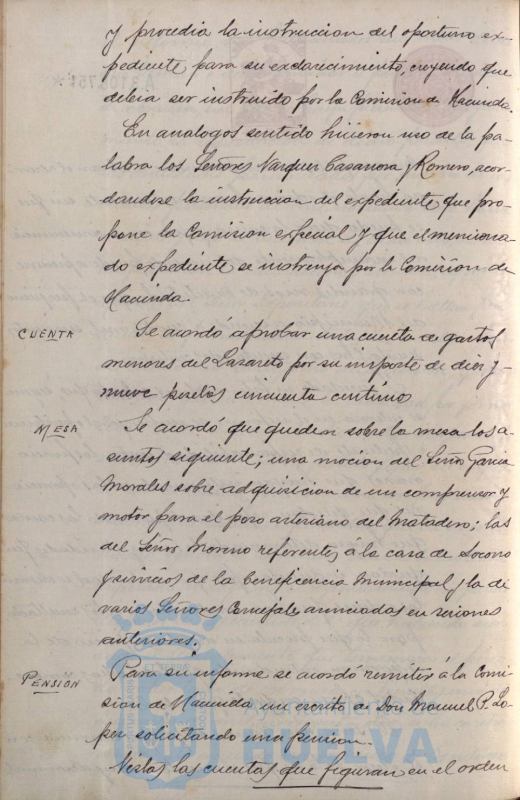 y procedia la instruccion del oportuno ex-
pediente para su esclarecimiento, creyendo que
debia ser instruido por la Comision de Hacienda.
En analogos sentido hicieron uso de la pa-
labra los Señores Vazquez Casanova y Romero, acor-
dandose la instruccion del expediente que pro-
pone la Comision especial y que el menciona-
do expediente se instruya por la Comision de
Hacienda.
CUENTA
Se acordó aprobar una cuenta de gastos
menores del Lazareto por su importe de diez y
nueve pesetas cincuenta centimos
MESA
Se acordó que queden sobre la mesa los a-
suntos siguiente; una mocion del Señor Garcia
Morales sobre adquisicion de un compresor y
motor para el pozo artesiano del Matadero; las
del Señor Moreno referentes á la casa de Socorro
y servicios de la beneficencia Municipal y la de
varios Señores Concejales anunciadas en sesiones
anteriores.
PENSION
Para su informe se acordó remitir á la Comi-
sion de Hacienda un escrito de Don Manuel P. Lo-
pez solicitando una pension.
Vistas las cuentas que figuran en el orden
Ayuntamiento
HUELVA